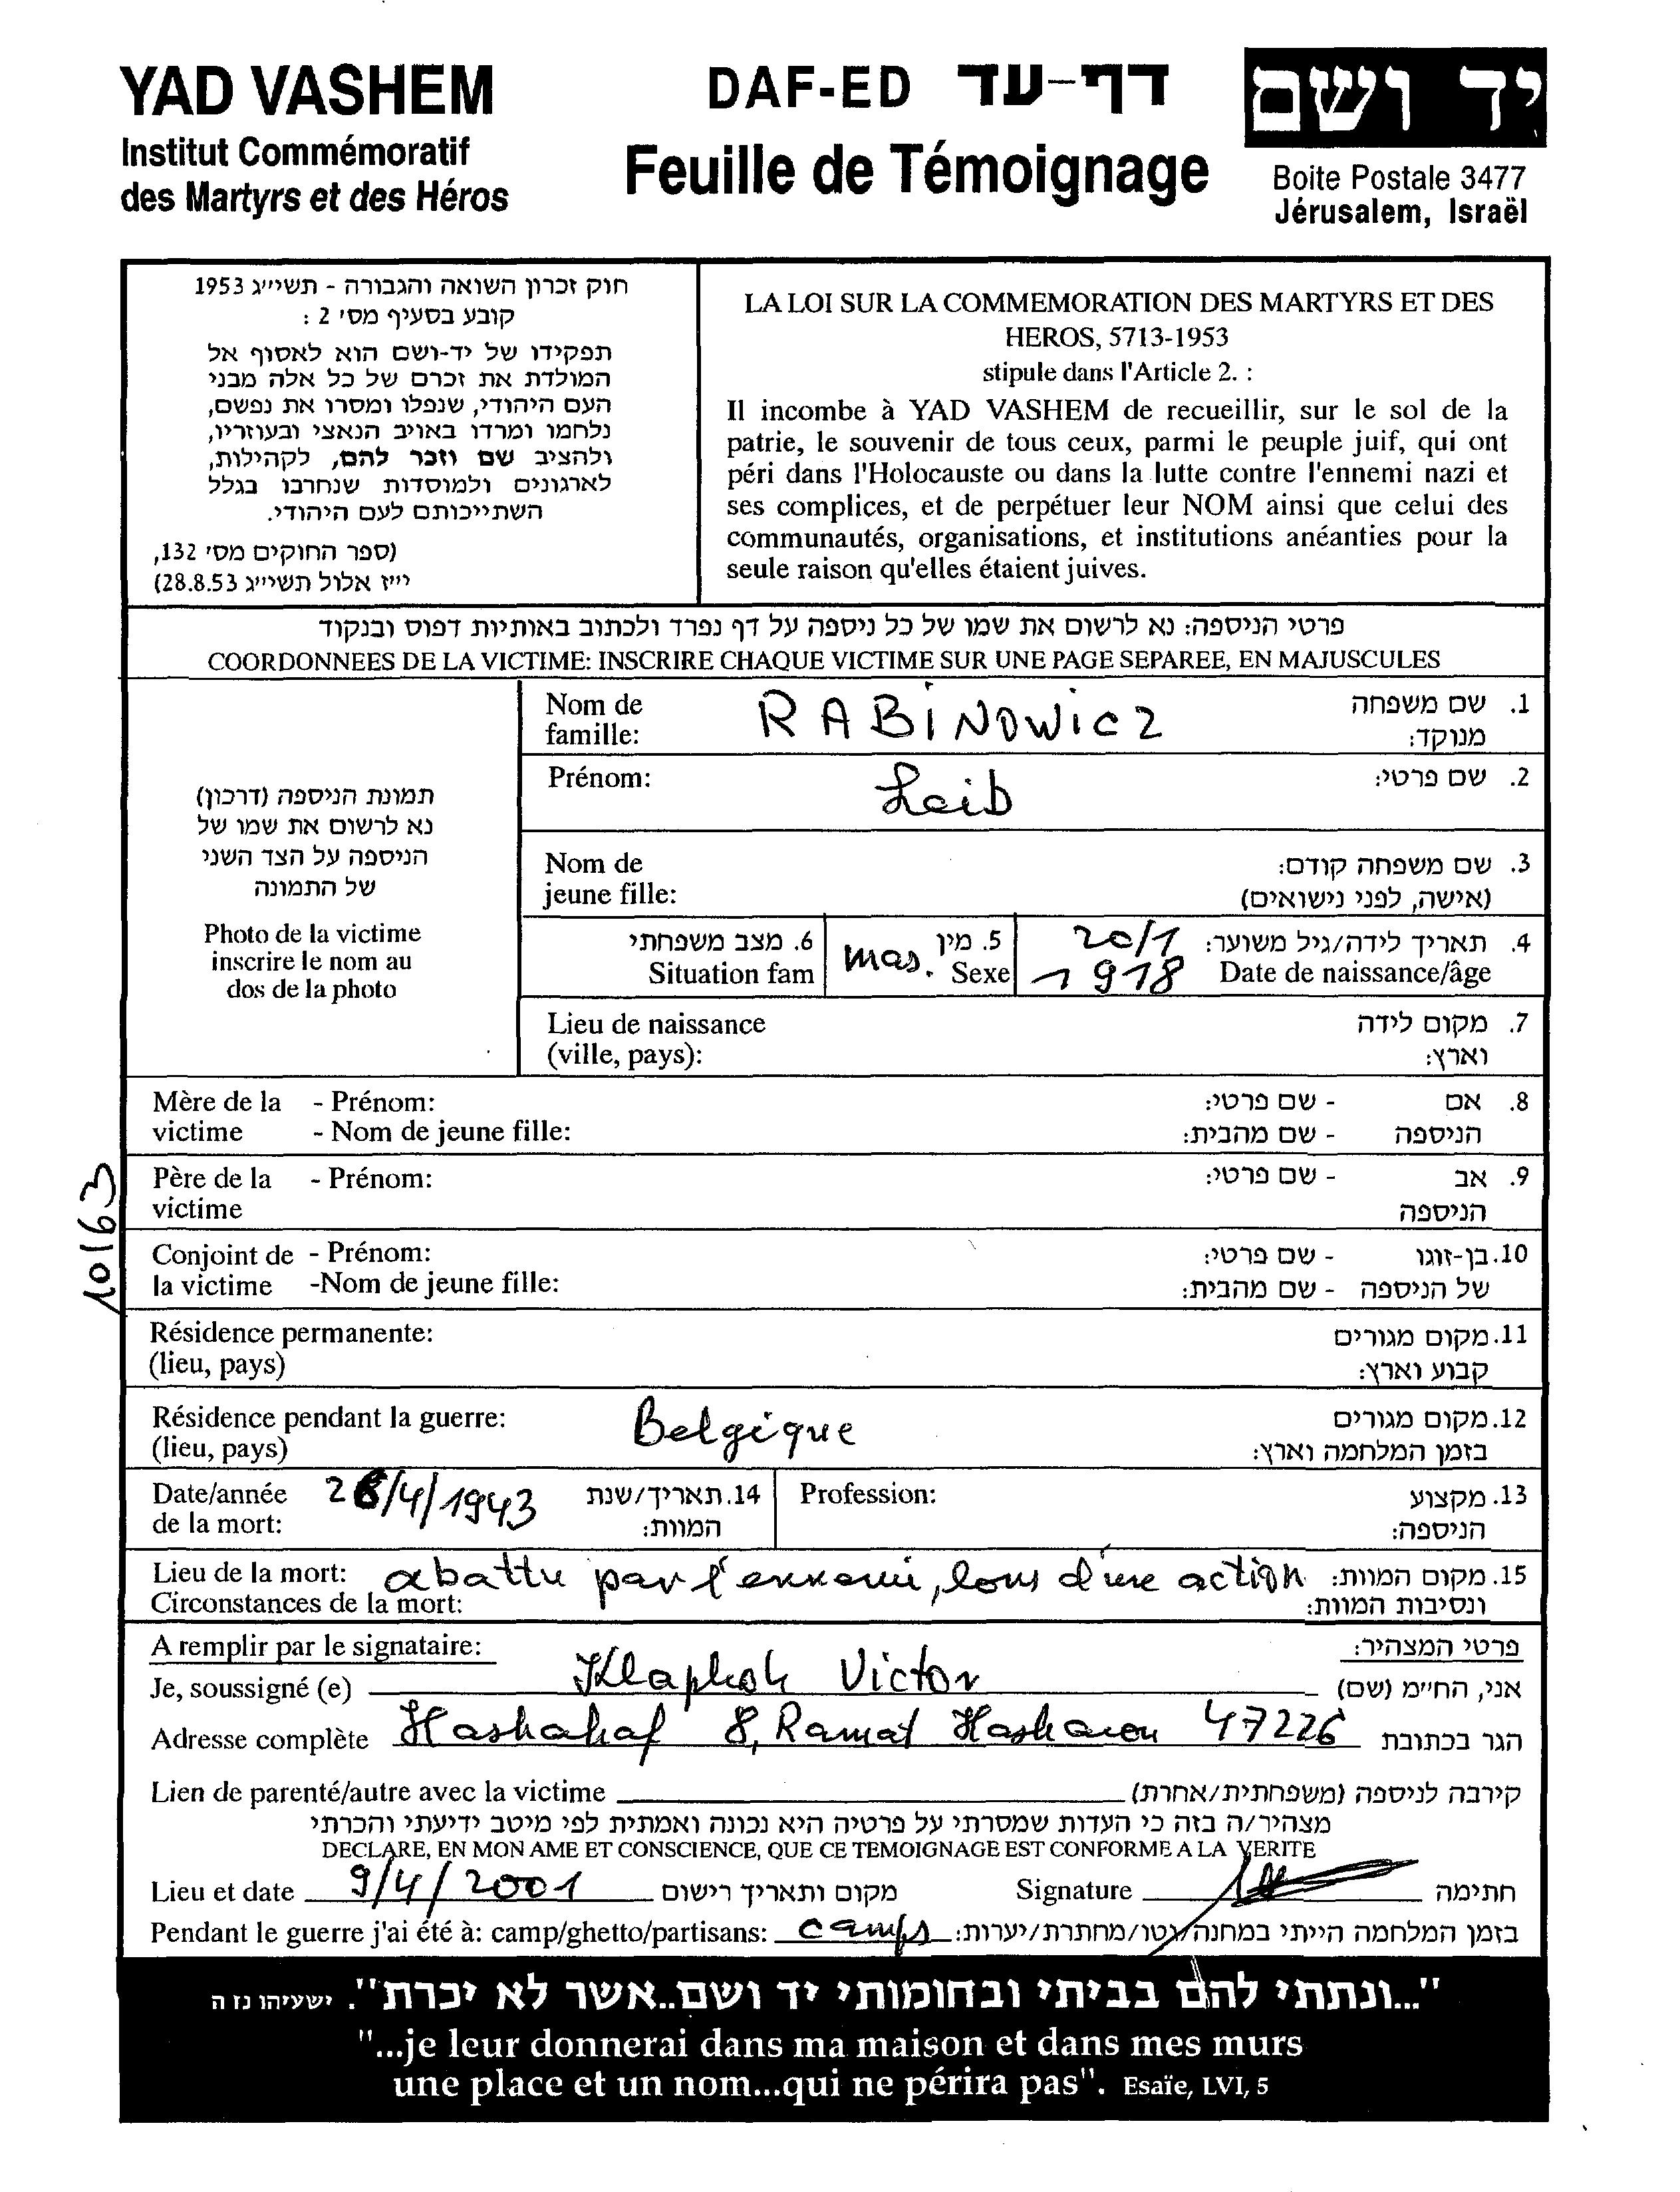 YAD VASHEM
Institut Commémoratif
des Martyrs et des Héros
DAF-ED דף-עד
Feuille de Témoignage
יד ושם
Boite Postale 3477
Jérusalem, Israël
חוק זכרון השואה והגבורה - תשי״ג 1953
קובע בסעיף מס' 2 :
תפקידו של יד-ושם הוא לאסוף אל
המולדת את זכרם של כל אלה מבני
העם היהודי, שנפלו ומסרו את נפשם,
נלחמו ומרדו באויב הנאצי ובעוזריו,
ולהציב שם וזכר להם, לקהילות,
לארגונים ולמוסדות שנחרבו בגלל
השתייכותם לעם היהודי.
(ספר החוקים מס' 132,
י״ז אלול תשי״ג 28.8.53)
LA LOI SUR LA COMMEMORATION DES MARTYRS ET DES
HEROS, 5713-1953
stipule dans l'Article 2. :
Il incombe à YAD VASHEM de recueillir, sur le sol de la
patrie, le souvenir de tous ceux, parmi le peuple juif, qui ont
péri dans l'Holocauste ou dans la lutte contre l'ennemi nazi et
ses complices, et de perpétuer leur NOM ainsi que celui des
communautés, organisations, et institutions anéanties pour la
seule raison qu'elles étaient juives.
פרטי הניספה: נא לרשום את שמו של כל ניספה על דף נפרד ולכתוב באותיות דפוס ובנקוד
COORDONNEES DE LA VICTIME: INSCRIRE CHAQUE VICTIME SUR UNE PAGE SEPAREE, EN MAJUSCULES
תמונת הניספה (דרכון)
נא לרשום את שמו של
הניספה על הצד השני
של התמונה
Photo de la victime
inscrire le nom au
dos de la photo
Nom de RABINOWICZ 1. שם משפחה
famille: מנוקד:
Prénom: Leib 2. שם פרטי:
Nom de 3. שם משפחה קודם:
jeune fille: (אישה, לפני נישואים)
6. מצב משפחתי mas. 5. מין 20/1 4. תאריך לידה/גיל משוער:
Situation fam Sexe 1918 Date de naissance/âge
Lieu de naissance 7. מקום לידה
(ville, pays): וארץ:
Mère de la - Prénom: - שם פרטי: 8. אם
victime - Nom de jeune fille: - שם מהבית: הניספה
Père de la - Prénom: - שם פרטי: 9. אב
victime הניספה
10163
Conjoint de - Prénom: - שם פרטי: 10. בן-זוגו
la victime -Nom de jeune fille: - שם מהבית: של הניספה
Résidence permanente: 11. מקום מגורים
(lieu, pays) קבוע וארץ:
Résidence pendant la guerre: Belgique 12. מקום מגורים
(lieu, pays) בזמן המלחמה וארץ:
Date/année /4/1943 14. תאריך/שנת Profession: 13. מקצוע
de la mort: המוות: הניספה:
Lieu de la mort: abattu par l'ennemi, lors d'une action 15. מקום המוות:
Circonstances de la mort: ונסיבות המוות:
A remplir par le signataire: פרטי המצהיר:
Je, soussigné (e) Klaphol Victor אני, החי״מ (שם)
Adresse complète Hashahaf 8, Ramat Hasharon 47226 הגר בכתובת
Lien de parenté/autre avec la victime קירבה לניספה (משפחתית/אחרת)
מצהיר/ה בזה כי העדות שמסרתי על פרטיה היא נכונה ואמתית לפי מיטב ידיעתי והכרתי
DECLARE, EN MON AME ET CONSCIENCE, QUE CE TEMOIGNAGE EST CONFORME A LA VERITE
Lieu et date 9/4/2001 מקום ותאריך רישום Signature חתימה
Pendant le guerre j'ai été à: camp/ghetto/partisans: camps בזמן המלחמה הייתי במחנה/גטו/מחתרת/יערות:
"...ונתתי להם בביתי ובחומותי יד ושם..אשר לא יכרת". ישעיהו נז ה
"...je leur donnerai dans ma maison et dans mes murs
une place et un nom...qui ne périra pas". Esaïe, LVI, 5